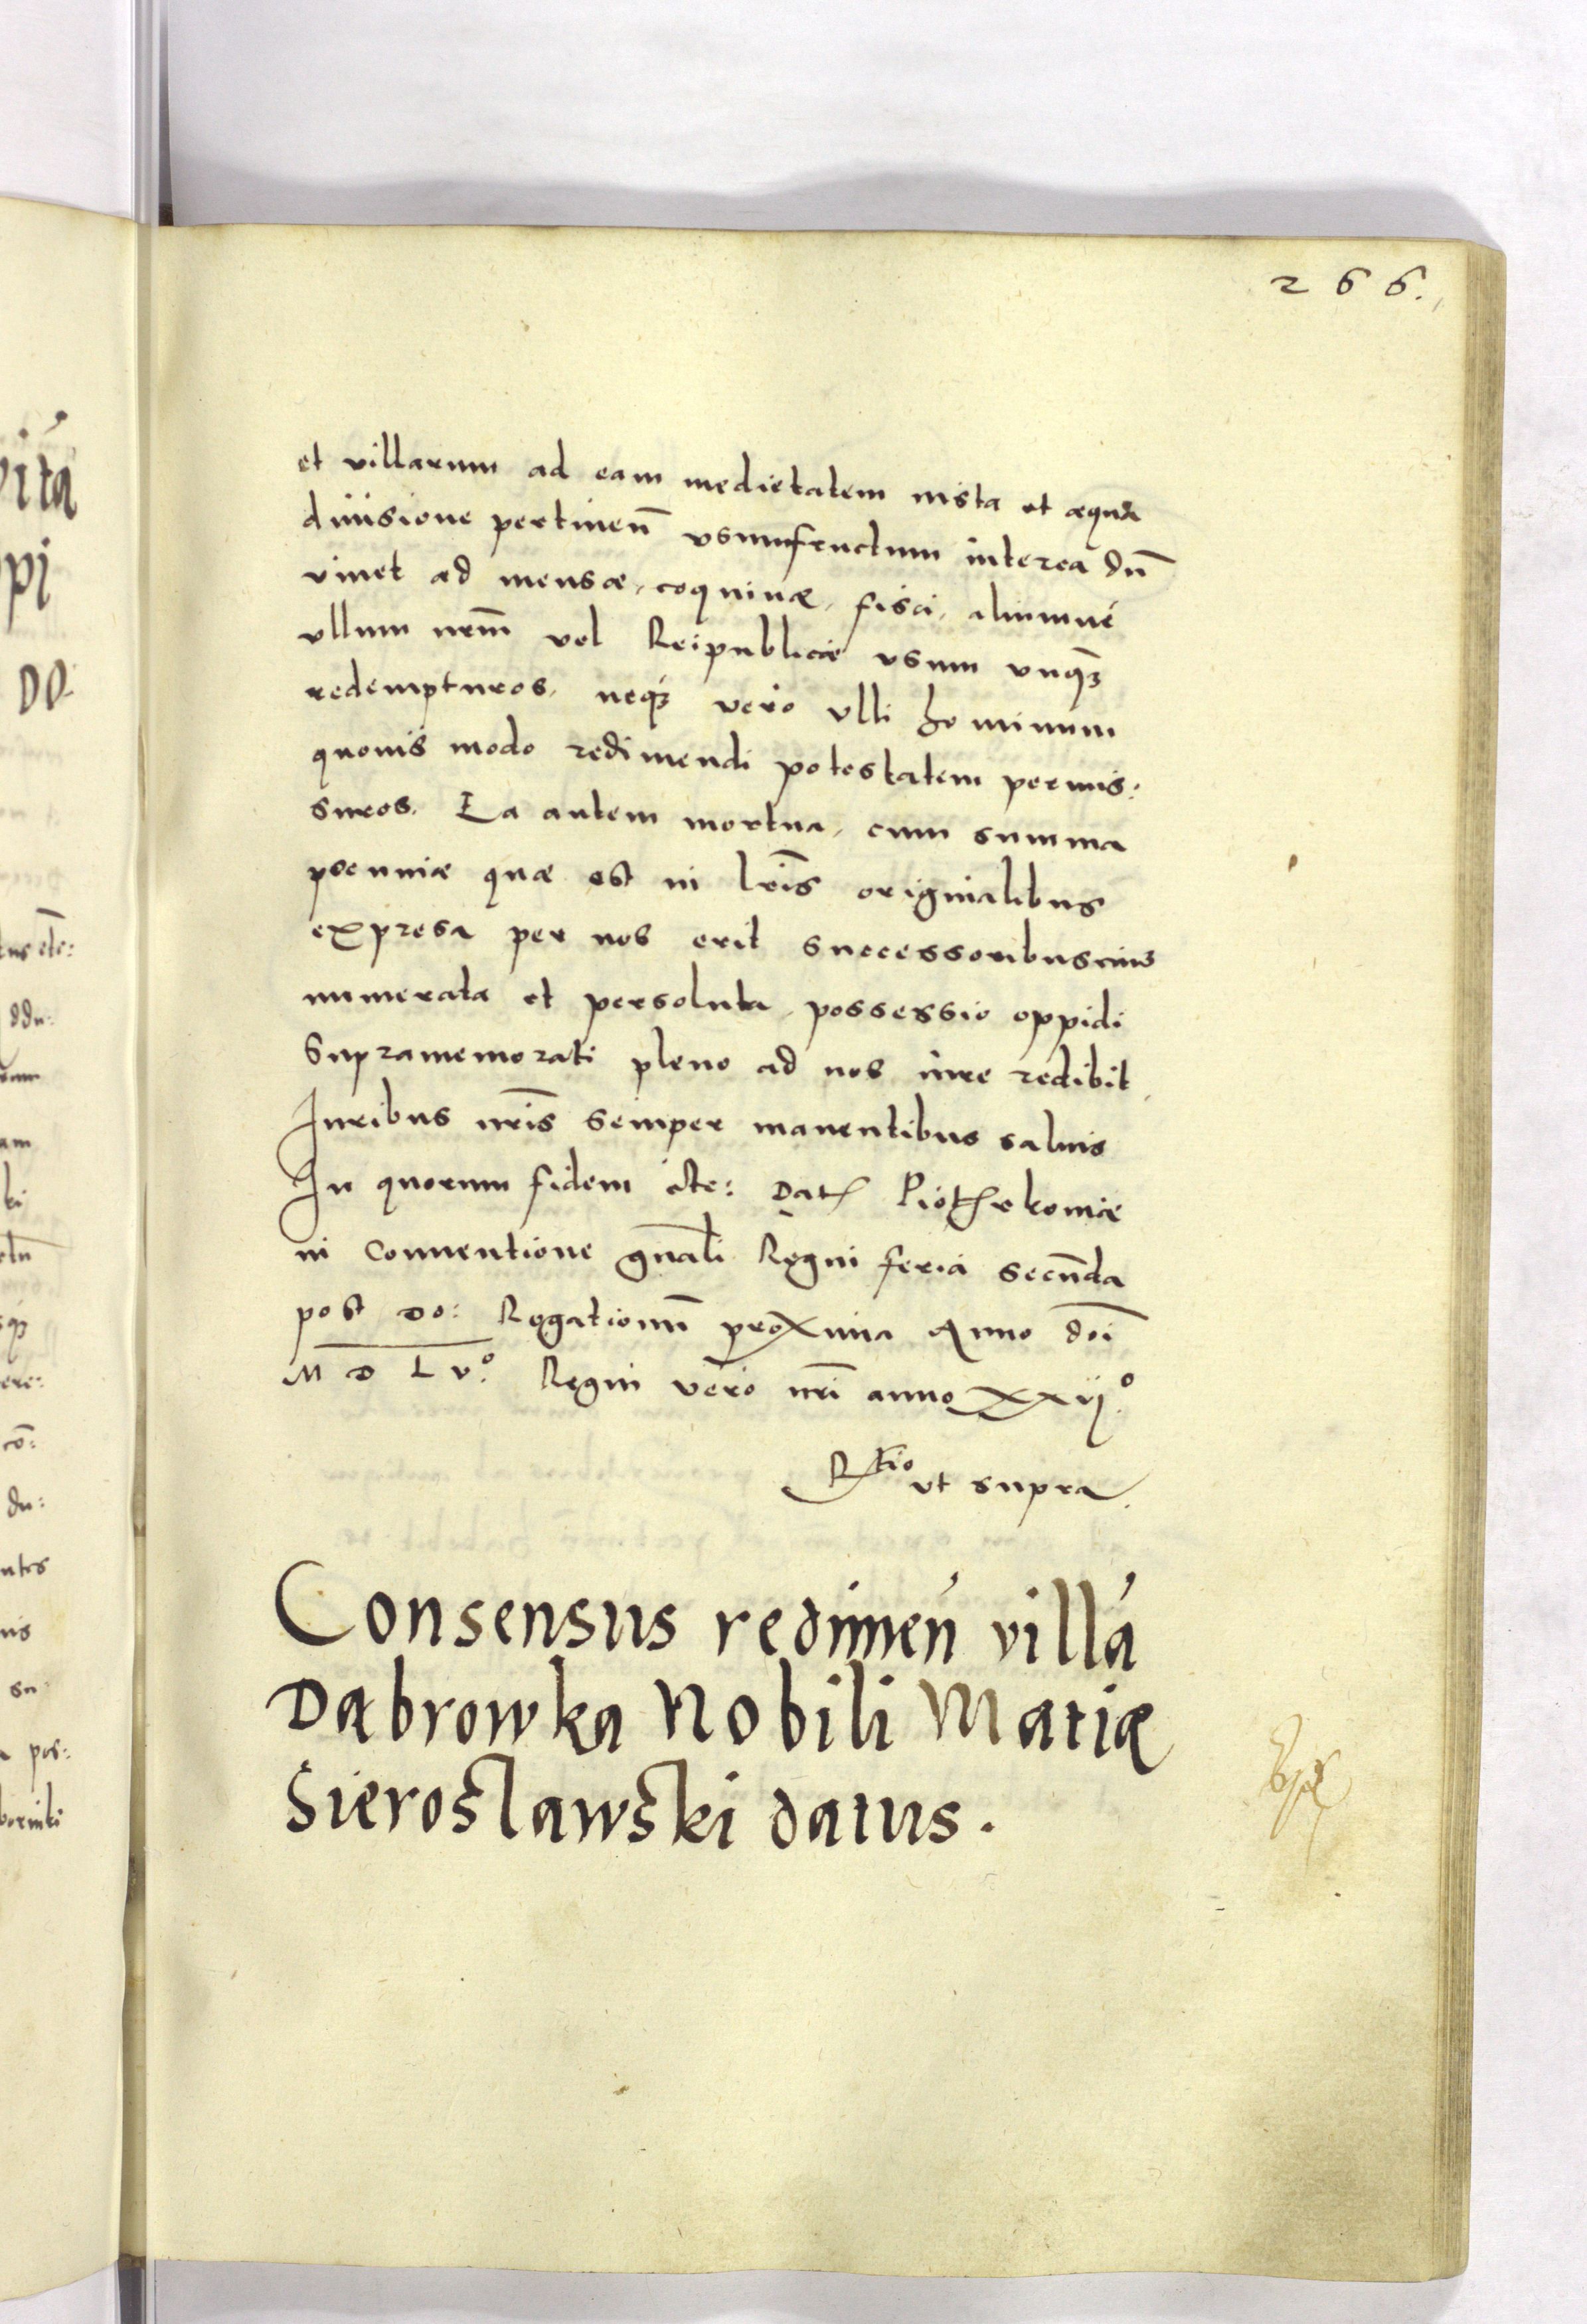 266.
et villarum ad eam medietatem iusta et æqua
diuisione pertinen̄ vsumfructum interea dū
viuet ad mensæ, coquinæ, fisci, aliumue
vllum nr̄m vel Reipublicæ vsum vnqꝫ
redempturos, neqꝫ vero vlli hominum
quouis modo redimendi potestatem permis:
suros. Ea autem mortua, cum summa
pecuniæ quæ est in lr̄is originalibus
expresa per nos erit successoribus eius
numerata et persoluta, possessio oppidi
supramemorati pleno ad nos iure redibit,
Iuribus nr̄is semper manentibus saluis
In quorum fidem etc: Dat Piothrkoviæ
in conuentione gn̄ali Regni feria secūda
post Do: Rogationū proxima Anno dōi
M D L vº. Regni vero nr̄i anno xxvijº.
Rtio vt supra.
Consensus redimeń villá
Dąbrowka Nobili Matiæ
Sieroslawski datus.